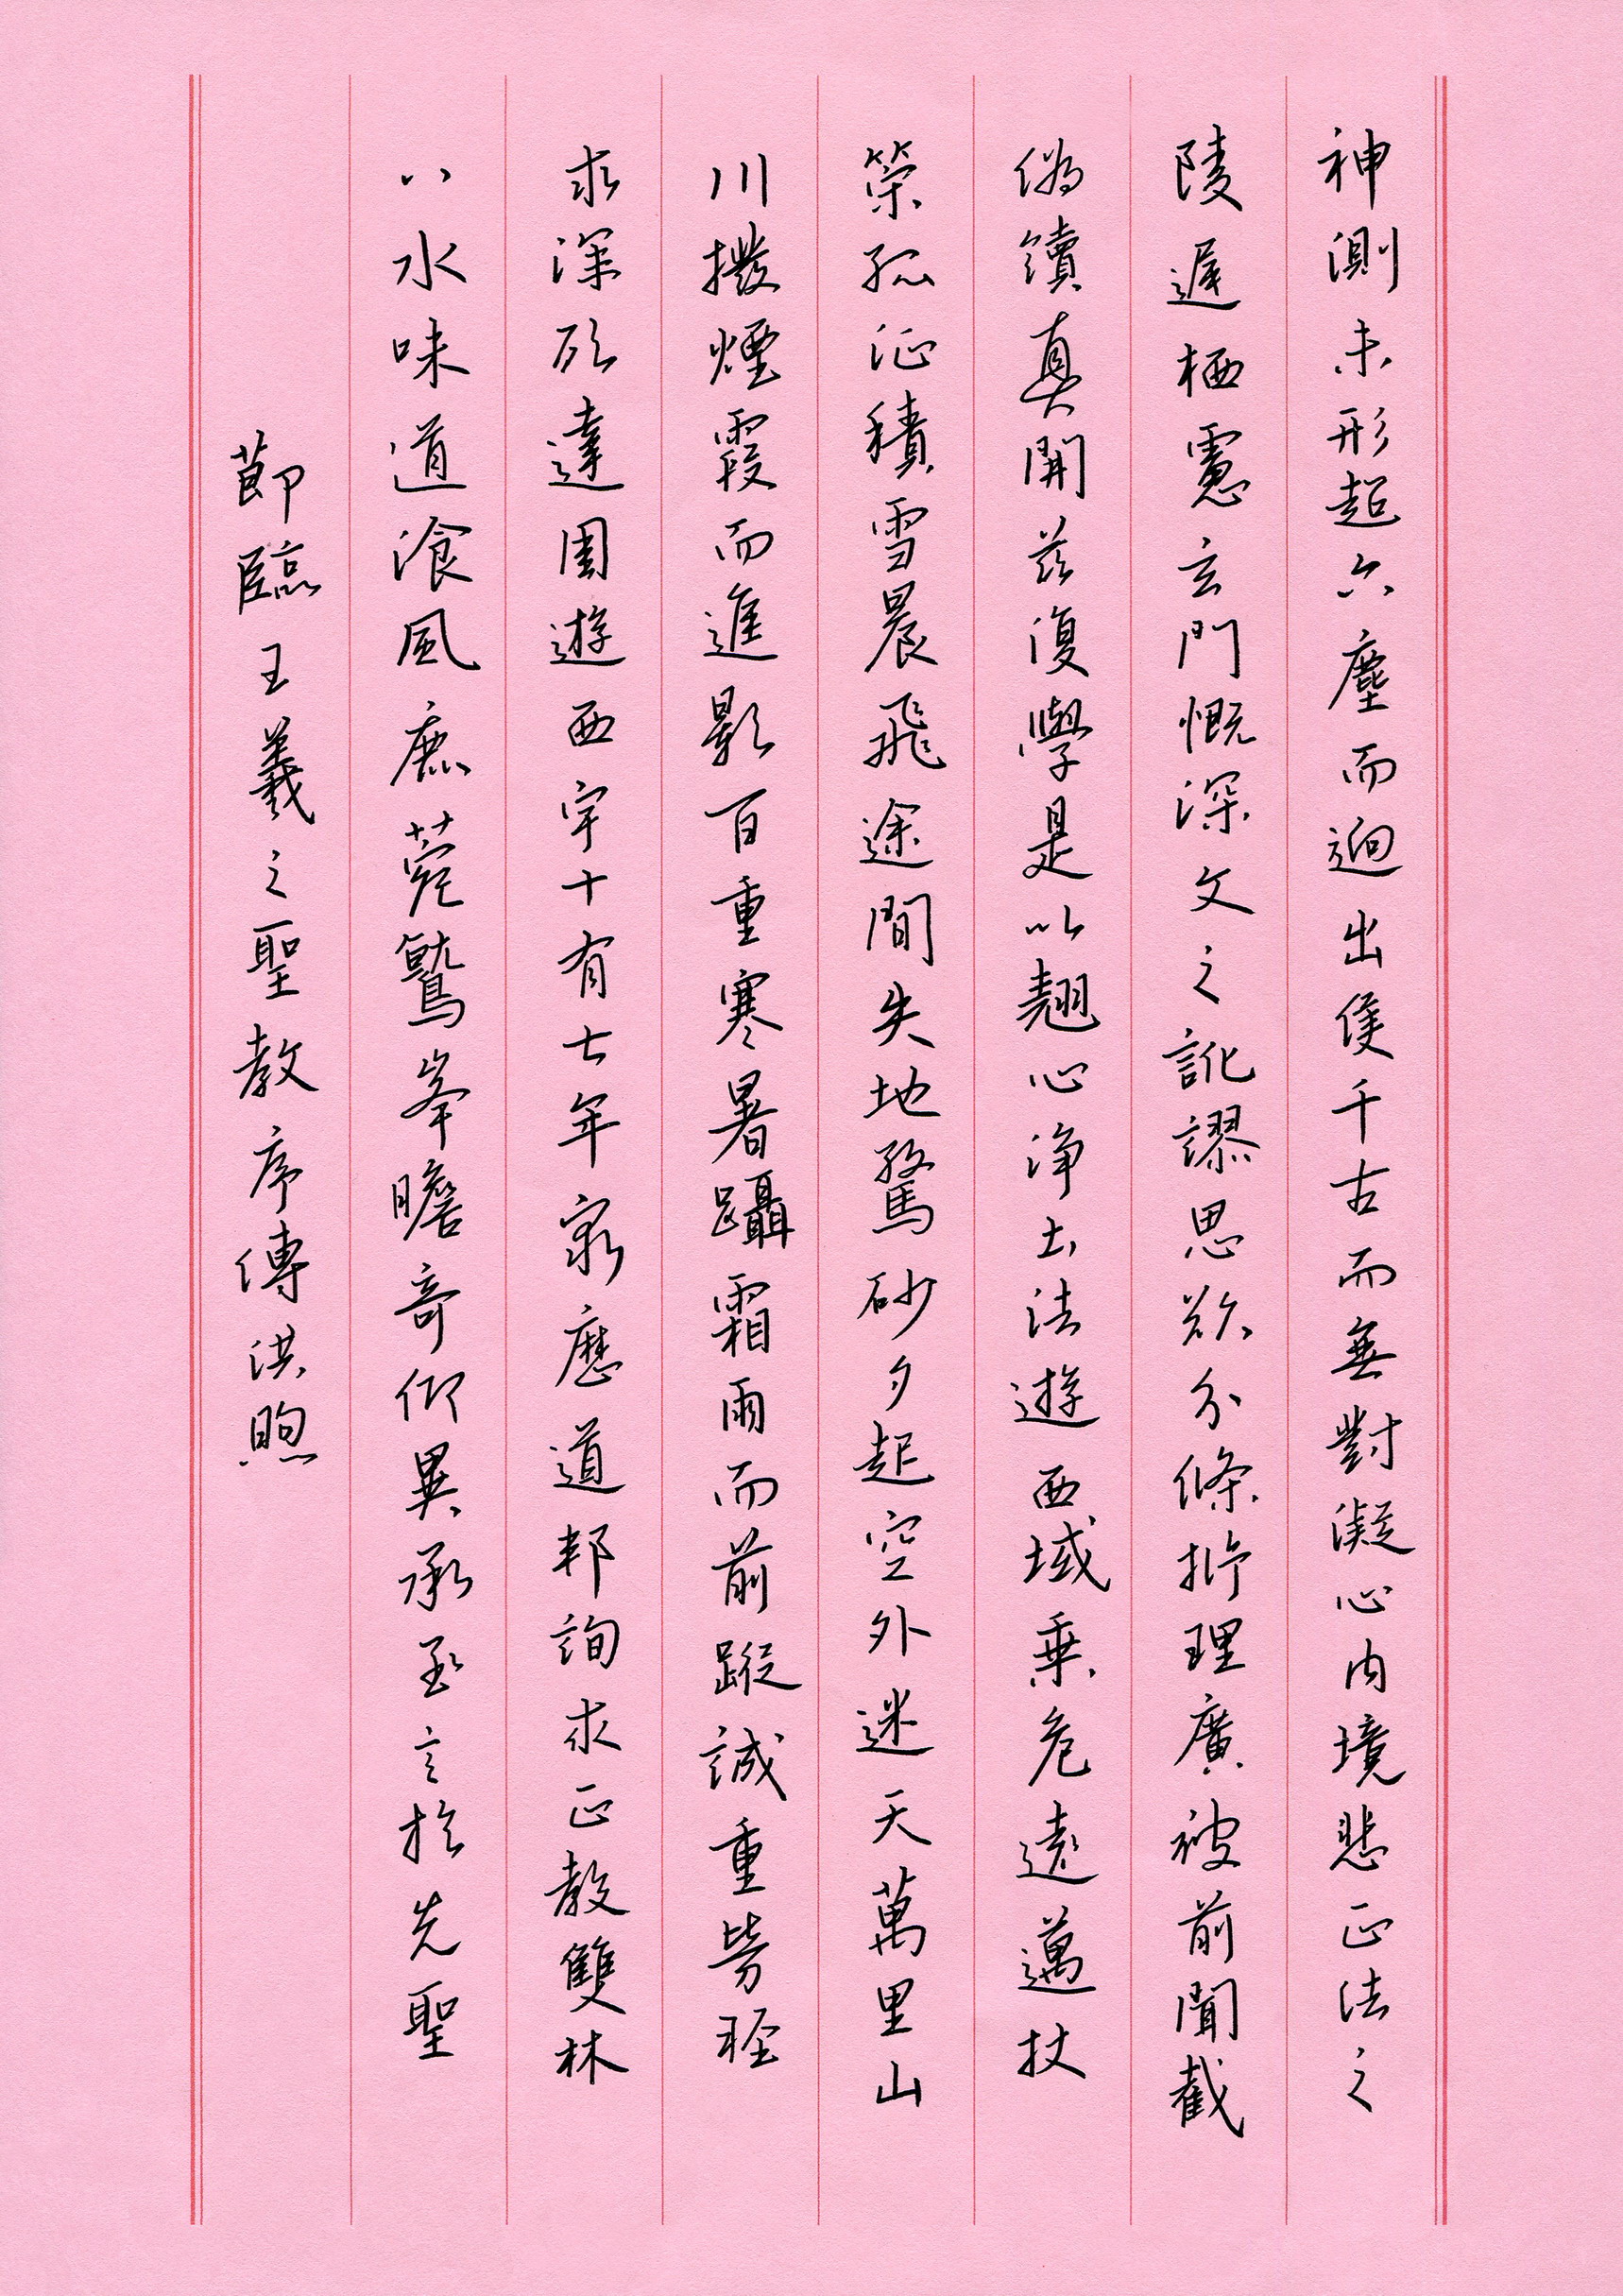 神測未形超六塵而迥出隻千古而無對凝心內境悲正法之
陵遲栖慮玄門慨深文之訛謬思欲分條析理廣彼前聞截
偽續真開茲後學是以翹心淨土法遊西域乘危遠邁杖
策孤征積雪晨飛途間失地驚砂夕起空外迷天萬里山
川撥煙霞而進影百重寒暑躡霜雨而前蹤誠重勞輕
求深願達周遊西宇十有七年窮歷道邦詢求正教雙林
八水味道飡風鹿菀鷲峯瞻奇仰異承至言於先聖
節臨王羲之聖教序傅洪煦